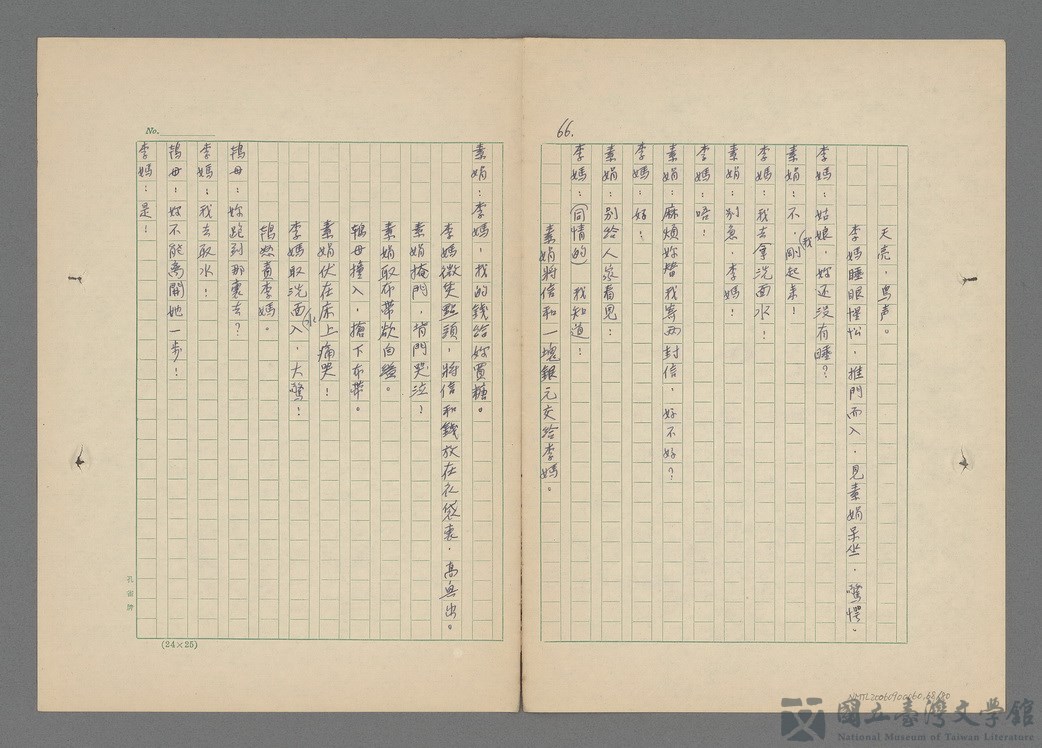 66.
天亮，鳥声。
李媽睡眼惺忪，推門而入，見素娟呆坐，驚愕。
李媽：姑娘，妳还沒有睡？
素娟：不，我剛起來！
李媽：我去拿洗面水！
素娟：別急，李媽！
李媽：唔！
素娟：麻煩妳替我寄两封信，好不好？
李媽：好！
素娟：別给人家看見！
李媽：（同情的）我知道！
素娟將信和一塊銀元交给李媽。
素娟：李媽，找的錢给妳買糖。
李媽微笑點頭，將信和錢放在衣袋裏，高興出。
素娟掩門，背門哭泣！
素娟取布帶欲自盡。
鴇母撞入，搶下布帶。
素娟伏在床上痛哭！
李媽取洗面水入，大驚！
鴇怒責李媽。
鴇母：妳跑到那裏去？
李媽：我去取水！
鴇母：妳不能离開她一步！
李媽：是！
No.
孔雀牌
(24×25)
NMTL20060900060.68/80
國立臺灣文學館
National Museum of Taiwan Literature